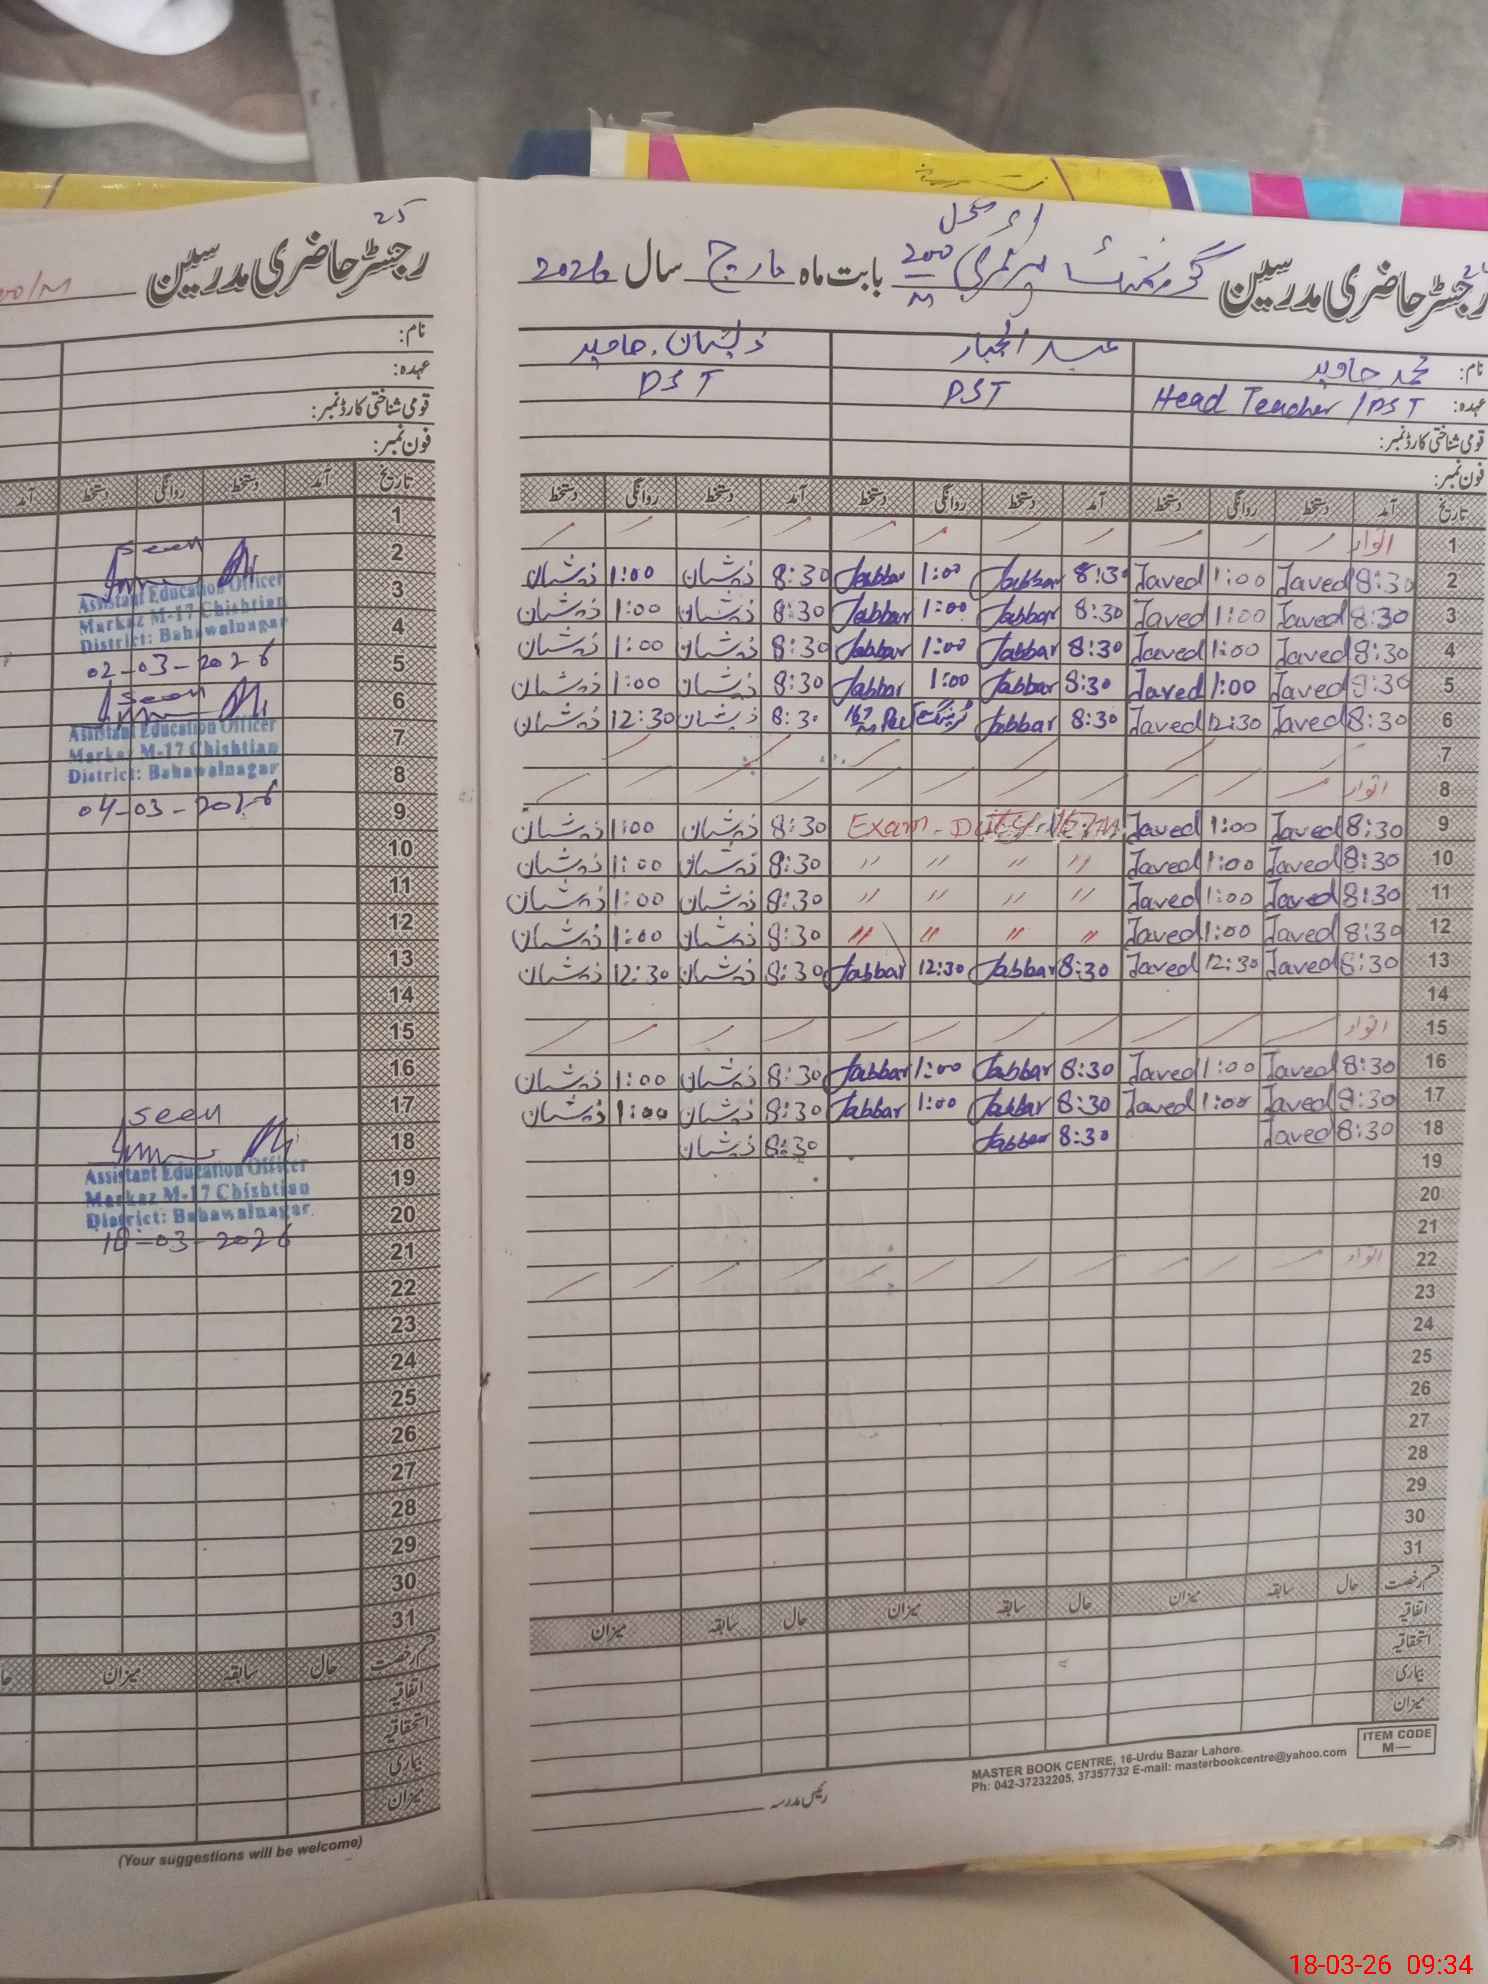 25
رجسٹر حاضری مدرسین
نام:
عہدہ:
قومی شناختی کارڈ نمبر:
فون نمبر:
تاریخ آمد دستخط روانگی دستخط آمد
1
2
3
4
5
6
7
8
9
10
11
12
13
14
15
16
17
18
19
20
21
22
23
24
25
26
27
28
29
30
31
seen
Assistant Education Officer
Markaz M-17 Chishtian
District: Bahawalnagar
02-03-2026
seen
Assistant Education Officer
Markaz M-17 Chishtian
District: Bahawalnagar
04-03-2026
seen
Assistant Education Officer
Markaz M-17 Chishtian
District: Bahawalnagar
18-03-2026
قسم رخصت حال سابقہ میزان
اتفاقیہ
استحقاقیہ
بیماری
میزان
(Your suggestions will be welcome)
رجسٹر حاضری مدرسین گورنمنٹ پرائمری 200/M بابت ماہ مارچ سال 2026
نام: محمد جاوید عبدالجبار ذیشان جاوید
عہدہ: Head Teacher / PST PST PST
قومی شناختی کارڈ نمبر:
فون نمبر:
تاریخ آمد دستخط روانگی دستخط آمد دستخط روانگی دستخط آمد دستخط روانگی دستخط
1 اتوار
2 8:30 Javed 1:00 Javed 8:30 Jabbar 1:00 Jabbar 8:30 ذیشان 1:00 ذیشان
3 8:30 Javed 1:00 Javed 8:30 Jabbar 1:00 Jabbar 8:30 ذیشان 1:00 ذیشان
4 8:30 Javed 1:00 Javed 8:30 Jabbar 1:00 Jabbar 8:30 ذیشان 1:00 ذیشان
5 8:30 Javed 1:00 Javed 8:30 Jabbar 1:00 Jabbar 8:30 ذیشان 1:00 ذیشان
6 8:30 Javed 12:30 Javed 8:30 Jabbar ٹریننگ 8:30 ذیشان 12:30 ذیشان
7
8 اتوار
9 8:30 Javed 1:00 Javed Exam-Duty 8:30 ذیشان 1:00 ذیشان
10 8:30 Javed 1:00 Javed " " " " 8:30 ذیشان 1:00 ذیشان
11 8:30 Javed 1:00 Javed " " " " 8:30 ذیشان 1:00 ذیشان
12 8:30 Javed 1:00 Javed " " " " 8:30 ذیشان 1:00 ذیشان
13 8:30 Javed 12:30 Javed 8:30 Jabbar 12:30 Jabbar 8:30 ذیشان 12:30 ذیشان
14
15 اتوار
16 8:30 Javed 1:00 Javed 8:30 Jabbar 1:00 Jabbar 8:30 ذیشان 1:00 ذیشان
17 8:30 Javed 1:00 Javed 8:30 Jabbar 1:00 Jabbar 8:30 ذیشان 1:00 ذیشان
18 8:30 Javed 8:30 Jabbar 8:30 ذیشان
19
20
21
22 اتوار
23
24
25
26
27
28
29
30
31
قسم رخصت حال سابقہ میزان حال سابقہ میزان حال سابقہ میزان
اتفاقیہ
استحقاقیہ
بیماری
میزان
رئیس مدرسہ
MASTER BOOK CENTRE, 16-Urdu Bazar Lahore.
Ph: 042-37232205, 37357732 E-mail: masterbookcentre@yahoo.com
ITEM CODE
M—
18-03-26 09:34